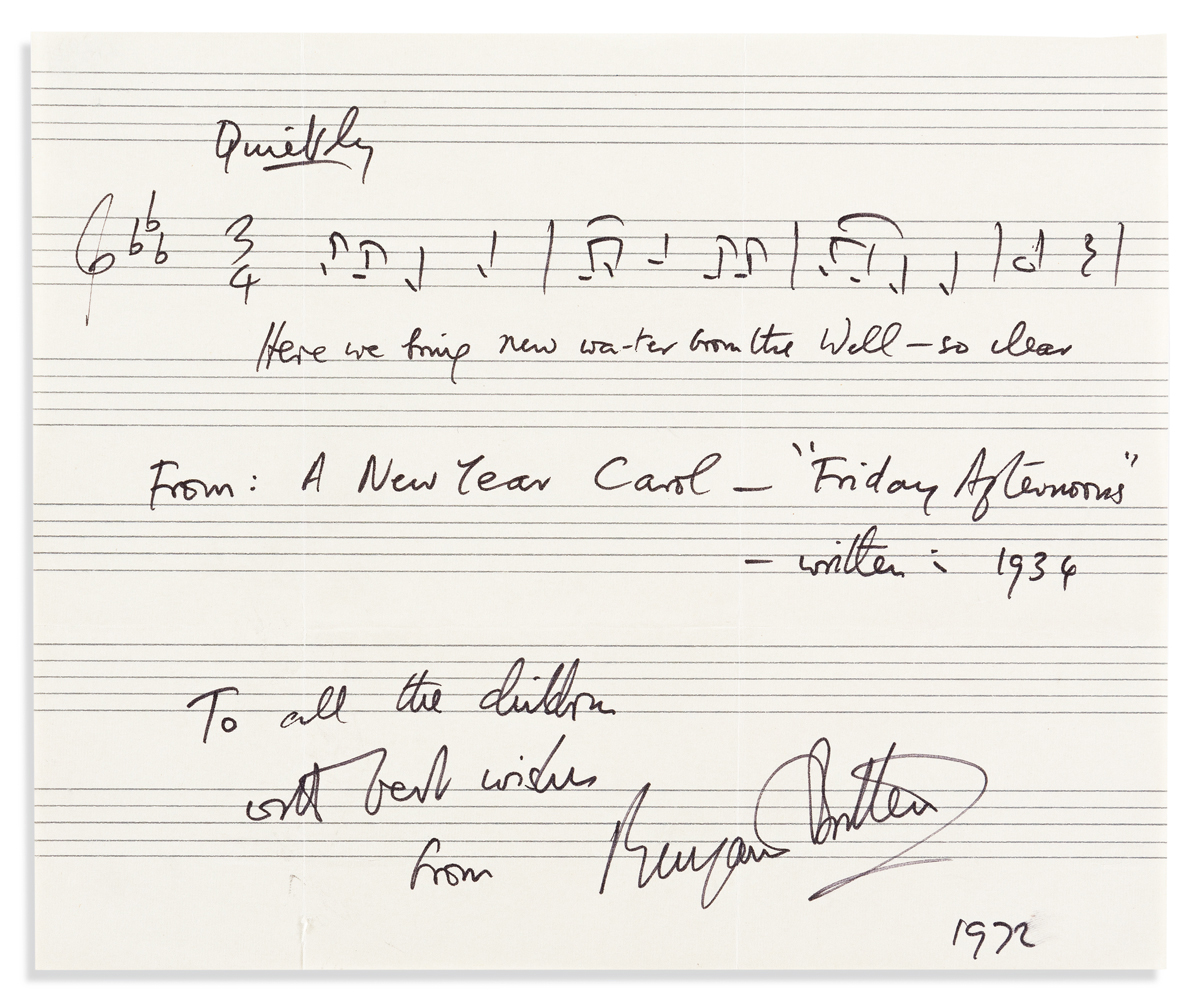 Quickly
3
4
Here we bring new wa-ter from the Well – so clear
From: A New Year Carol – "Friday Afternoons"
– written: 1934
To all the children
with best wishes
from Benjamin Britten
1972